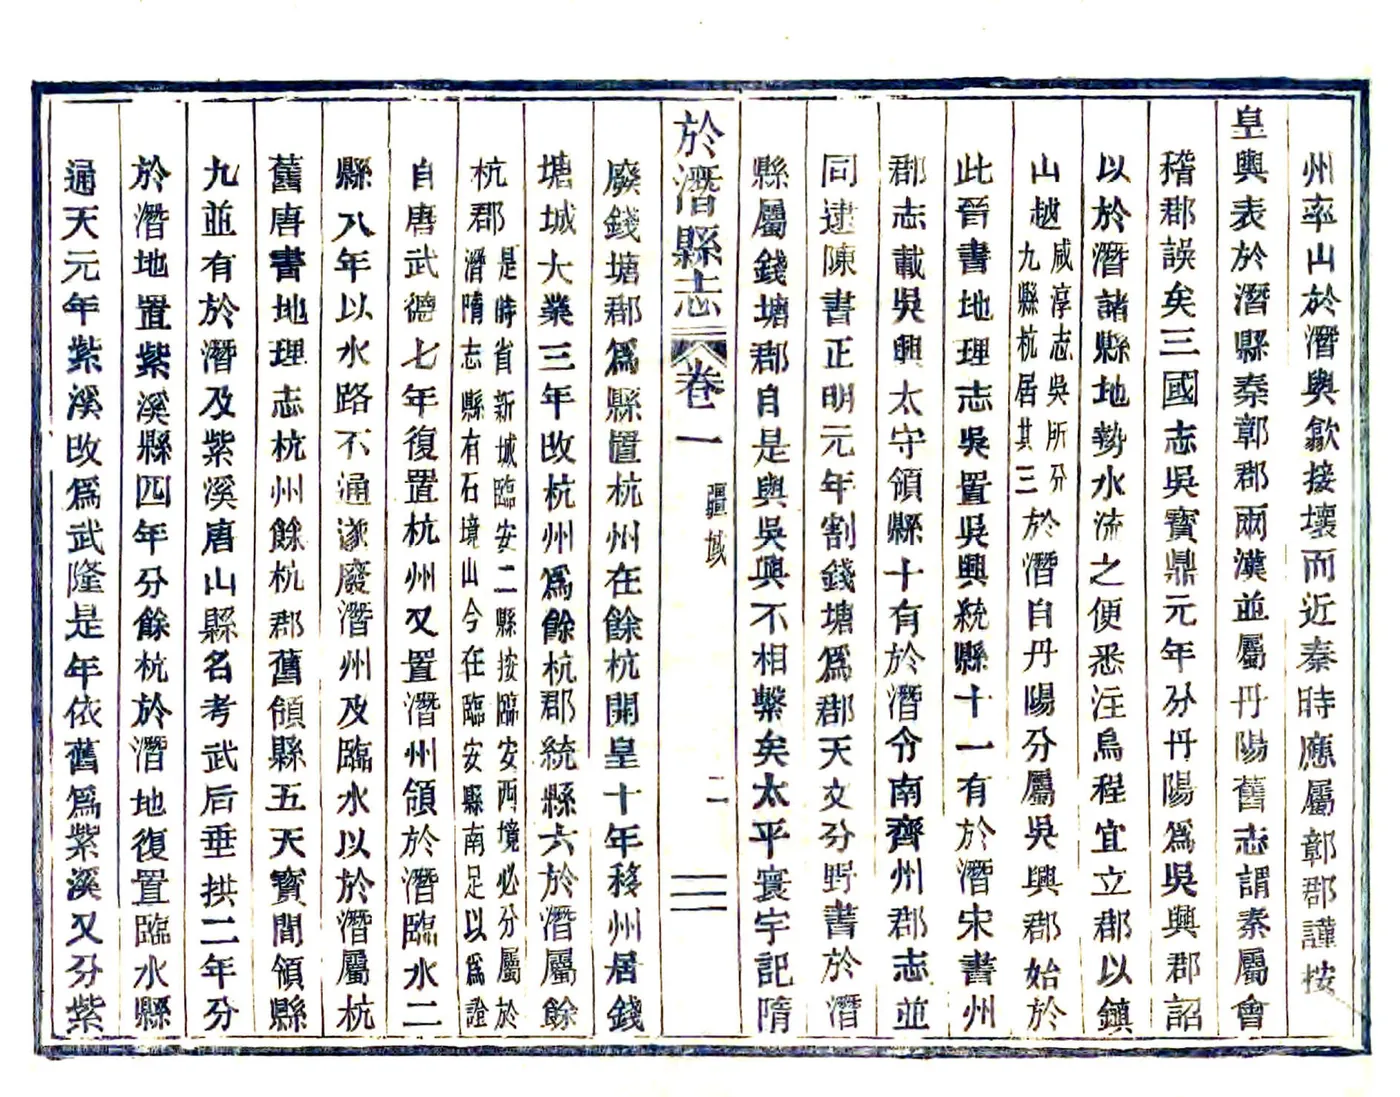 州率山於潛與歙接壤而近秦時應屬鄣郡謹按
皇輿表於潛縣秦鄣郡兩漢並屬丹陽舊志謂秦屬會
稽郡誤矣三國志吳寶鼎元年分丹陽爲吳興郡詔
以於潛諸縣地勢水流之便悉注烏程宜立郡以鎮
山越咸淳志吳所分九縣杭居其三於潛自丹陽分屬吳興郡始於
此晉書地理志吳置吳興統縣十一有於潛宋書州
郡志載吳興太守領縣十有於潛令南齊州郡志並
同逮陳書正明元年割錢塘爲郡天文分野書於潛
縣屬錢塘郡自是與吳興不相繫矣太平寰宇記隋
於潛縣志 卷一 疆域 二
廢錢塘郡爲縣置杭州在餘杭開皇十年移州居錢
塘城大業三年改杭州爲餘杭郡統縣六於潛屬餘
杭郡是時省新城臨安二縣按臨安西境必分屬於潛隋志縣有石境山今在臨安縣南足以爲證
自唐武德七年復置杭州又置潛州領於潛臨水二
縣八年以水路不通遂廢潛州及臨水以於潛屬杭
舊唐書地理志杭州餘杭郡舊領縣五天寶間領縣
九並有於潛及紫溪唐山縣名考武后垂拱二年分
於潛地置紫溪縣四年分餘杭於潛地復置臨水縣
通天元年紫溪改爲武隆是年依舊爲紫溪又分紫